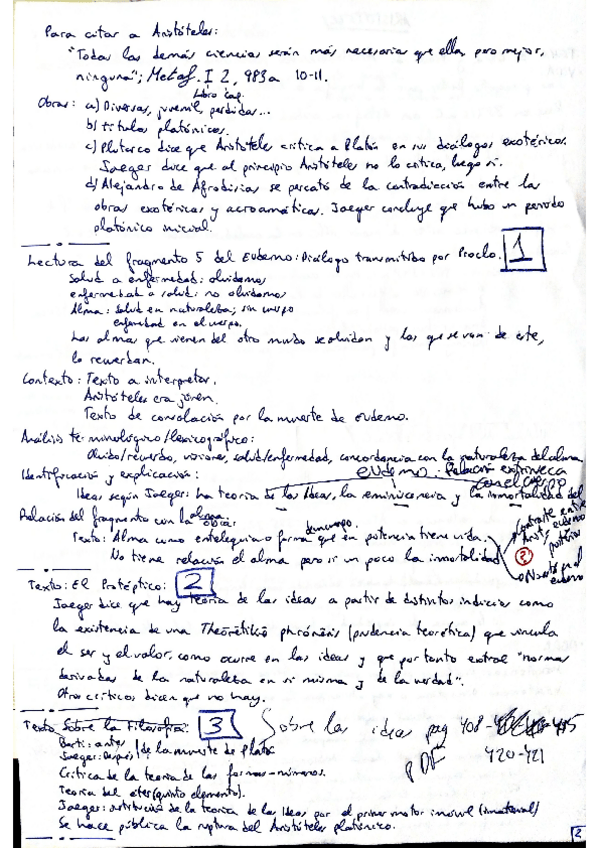 Para citar a Aristóteles:
"Todas las demás ciencias serán más necesarias que ella, pero mejor,
ninguna"; Metaf. I 2, 983a 10-11.
Libro Cap.
Obras: a) Diversas, juvenil, perdidas...
b) titulos platónicos.
c) Plutarco dice que Aristóteles critica a Platón en sus diálogos exotéricos.
Jaeger dice que al principio Aristóteles no lo critica, luego si.
d) Alejandro de Afrodisias se percató de la contradicción entre las
obras exotéricas y acroamáticas. Jaeger concluye que hubo un periodo
platónico inicial.
Lectura del fragmento 5 del Eudemo: Diálogo transmitido por Proclo. 1
Salud a enfermedad: olvidamos
enfermedad a salud: no olvidamos
Alma: salud en naturaleza; sin cuerpo
enfermedad en el cuerpo.
Las almas que vienen del otro mundo se olvidan y las que se van de este,
lo recuerdan.
Contexto: Texto a interpretar.
Aristóteles era joven.
Texto de consolación por la muerte de eudemo.
Análisis terminológico/lexicográfico:
Olvido/recuerdo, visiones, salud/enfermedad, concordancia con la naturaleza del alma.
Identificación y explicación: eudemo: Relación extrínseca
con el cuerpo
Ideas según Jaeger: la teoría de las Ideas, la reminiscencia y la inmortalidad del
Relación del fragmento con la obra:
Texto: Alma como entelequia o forma que en potencia tiene vida.
No tiene relación el alma pero si un poco la inmortalidad
Contraste entre
Arist. eudemo
posterior
?
eudemo
Texto: El Protéptico: 2
Jaeger dice que hay teoría de las ideas a partir de distintos indicios como
la existencia de una Theōrētikē phrónēsis (prudencia teorética) que vincula
el ser y el valor, como ocurre en las ideas y que por tanto extrae "normas
derivadas de la naturaleza en si misma y de la verdad".
Otros críticos dicen que no hay.
Texto Sobre la Filosofía: 3 Sobre las ideas pag 408-415
PDF 420-421
Berti: antes
Jaeger: Después de la muerte de Platón
Crítica de la teoría de las formas-números.
Teoría del éter (quinto elemento).
Jaeger: sustitución de la teoría de las Ideas por el primer motor inmóvil (inmaterial)
Se hace pública la ruptura del Aristóteles platónico.
2